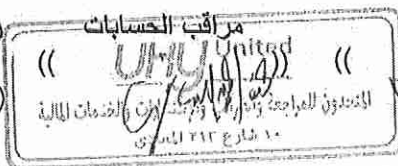 مراقب الحسابات
(( UHY United )) ((
المتحدون للمراجعة والضرائب والاستشارات والخدمات المالية
١٠ شارع ٢١٣ المعادي